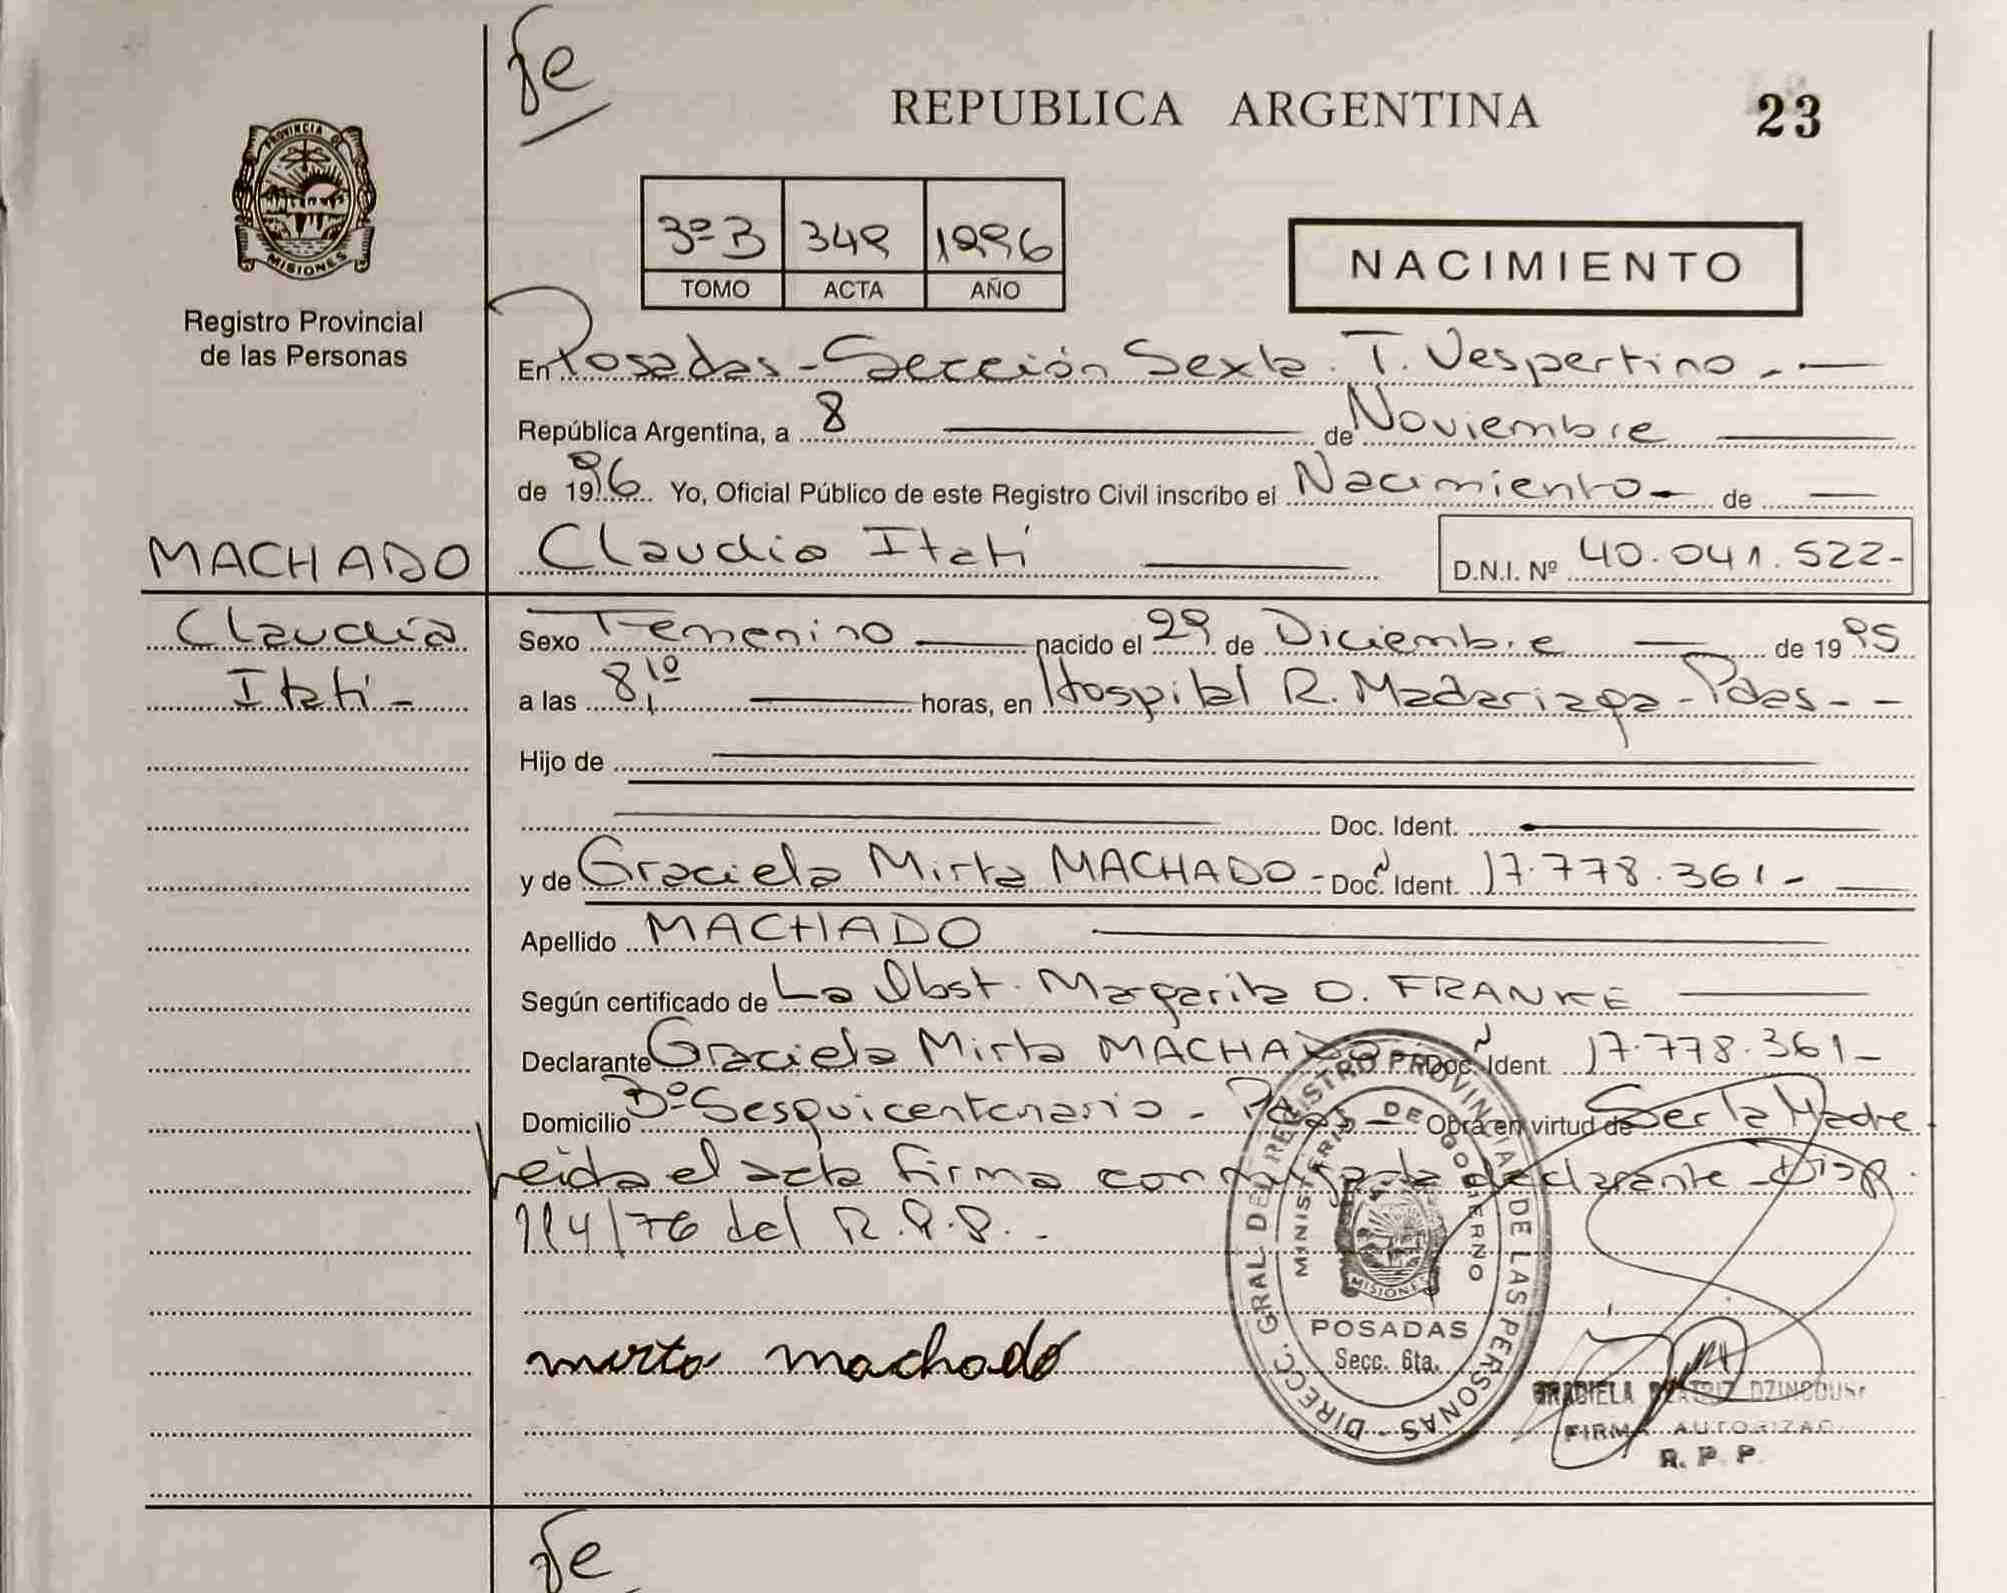 fe
REPUBLICA ARGENTINA 23
PROVINCIA DE
MISIONES
Registro Provincial
de las Personas
3º B 349 1996
TOMO ACTA AÑO
NACIMIENTO
En Posadas - Sección Sexta. T. Vespertino. -
República Argentina, a 8 de Noviembre
de 1996 Yo, Oficial Público de este Registro Civil inscribo el Nacimiento - de
MACHADO Claudia Itatí D.N.I. Nº 40.041.522-
Claudia Sexo Femenino nacido el 29 de Diciembre de 1995
Itatí - a las 8,10 horas, en Hospital R. Madariaga - Pdas - -
Hijo de
Doc. Ident.
y de Graciela Mirta MACHADO - Doc. Ident. 17.778.361 -
Apellido MACHADO
Según certificado de La Obst. Margarita O. FRANKE
Declarante Graciela Mirta MACHADO Doc. Ident. 17.778.361-
Domicilio Bº Sesquicentenario - Pdas - Obra en virtud de Ser la Madre
Leida el acta firma conmigo la declarante - Disp.
114/76 del R.P.P. -
mirta machado
DIRECC. GRAL DEL REGISTRO PROVINCIAL DE LAS PERSONAS -
MINISTERIO DE GOBIERNO
MISIONES
POSADAS
Secc. 6ta.
GRACIELA BEATRIZ
FIRMA AUTORIZAD
R. P. P.
fe